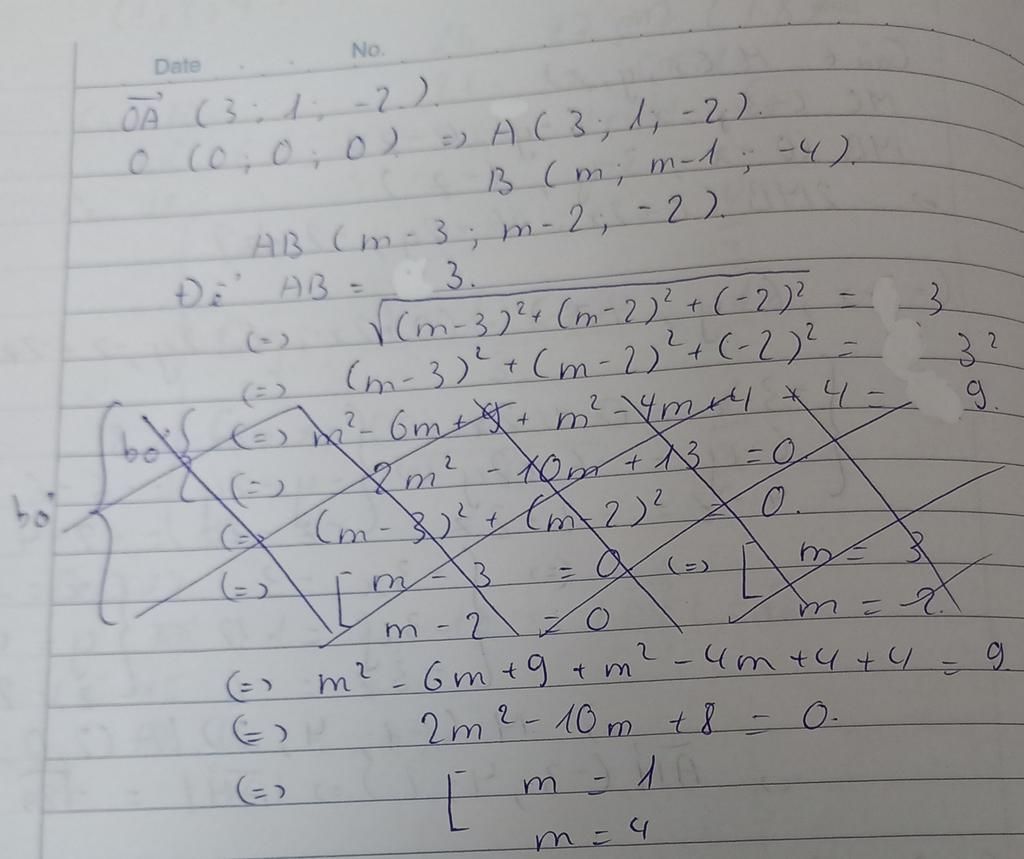 Date No.
OA (3; 1; -2).
O (0; 0; 0) => A (3; 1; -2).
B (m; m-1; -4).
AB (m-3; m-2; -2).
Để AB = 3.
(=) √(m-3)² + (m-2)² + (-2)² = 3
(=) (m-3)² + (m-2)² + (-2)² = 3²
bỏ (=) m² - 6m + 9 + m² - 4m + 4 + 4 = 9.
(=) 2m² - 10m + 13 = 0
bỏ (=) (m-3)² + (m-2)² = 0.
(=) [ m - 3 = 0 (=) [ m = 3
m - 2 = 0 m = 2
(=) m² - 6m + 9 + m² - 4m + 4 + 4 = 9
(=) 2m² - 10m + 8 = 0.
(=) [ m = 1
m = 4